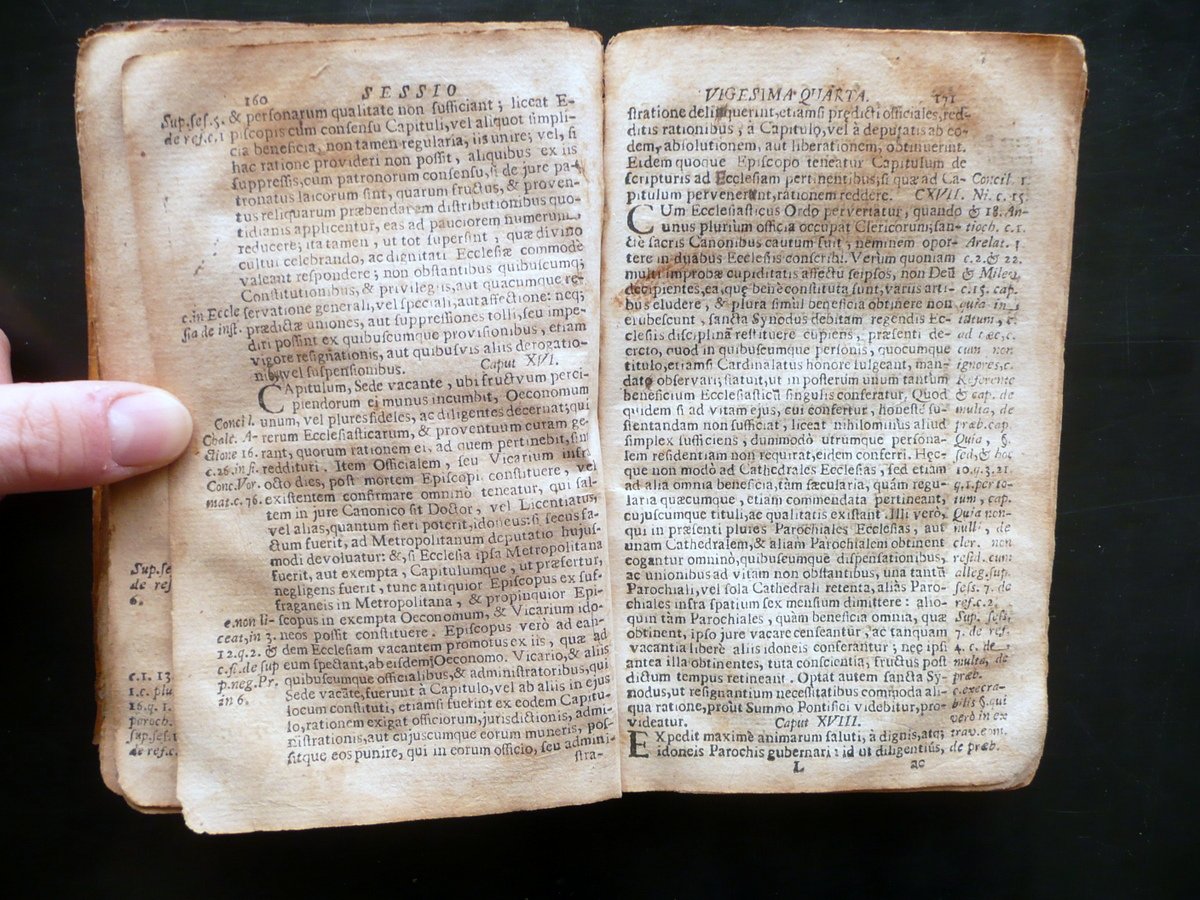 160 SESSIO
Sup. ses. 5. & personarum qualitate non sufficiant; liceat E-
de ref. c. 1 piscopis cum consensu Capituli, vel aliquot simpli-
cia beneficia, non tamen regularia, iis unire; vel, si
hac ratione provideri non possit, aliquibus ex iis
suppressis, cum patronorum consensu, si de jure pa-
tronatus laicorum sint, quarum fructus, & proven-
tus reliquarum præbendarum distributionibus quo-
tidianis applicentur, eas ad pauciorem numerum
reducere; ita tamen, ut tot supersint, quæ divino
cultui celebrando, ac dignitati Ecclesiæ commodè
valeant respondere; non obstantibus quibuscumq;
Constitutionibus, & privilegiis, aut quacumque re-
c. in Eccle servatione generali, vel speciali, aut affectione: neq;
sia de inst. prædictæ uniones, aut suppressiones tolli, seu impe-
diri possint ex quibuscumque provisionibus, etiam
vigore resignationis, aut quibusvis aliis derogatio-
nib, vel suspensionibus. Caput XVI.
CApitulum, Sede vacante, ubi fructvum perci-
piendorum ei munus incumbit, Oeconomum
Concil. unum, vel plures fideles, ac diligentes decernat; qui
Chalc. A- rerum Ecclesiasticarum, & proventuum curam ge-
ctione 16. rant, quorum rationem ei, ad quem pertinebit, sint
c. 26. in fi. reddituri. Item Officialem, seu Vicarium infra
Conc. Vor. octo dies, post mortem Episcopi constituere, vel
mat. c. 76. existentem confirmare omninò teneatur, qui sal-
tem in jure Canonico sit Doctor, vel Licentiatus,
vel alias, quantum fieri poterit, idoneus: si secus fa-
ctum fuerit, ad Metropolitanum deputatio hujus-
modi devoluatur: &, si Ecclesia ipsa Metropolitana
fuerit, aut exempta, Capitulumque, ut præfertur,
negligens fuerit, tunc antiquior Episcopus ex suf-
fraganeis in Metropolitana, & propinquior Epi-
e. non li- scopus in exempta Oeconomum, & Vicarium ido-
ceat, in 3. neos possit constituere. Episcopus verò ad ean-
12. q. 2. & dem Ecclesiam vacantem promotus ex iis, quæ ad
c. si. de sup eum spectant, ab eisdem Oeconomo. Vicario, & aliis
p. neg. Pr. quibuscumque officialibus, & administratoribus, qui
in 6. Sede vacãte, fuerunt à Capitulo, vel ab aliis in ejus
locum constituti, etiamsi fuerint ex eodem Capitu-
lo, rationem exigat officiorum, jurisdictionis, admi-
nistrationis, aut cujuscumque eorum muneris, pos-
sitque eos punire, qui in eorum officio, seu admini-
stra-
Sup. se
de ref
6.
c. 1. 13
1. c. plu
16. q. 1.
paroch.
sup. ses. 1
de ref. c.
VIGESIMA QUARTA. 171
stratione delinquerint, etiamsi prædicti officiales, red-
ditis rationibus, à Capitulo, vel à deputatis ab eo-
dem, absolutionem, aut liberationem, obtinuerint.
Eidem quoque Episcopo teneatur Capitulum de
scripturis ad Ecclesiam pertinentibus, si quæ ad Ca- Concil. 1.
pitulum pervenerunt, rationem reddere. CXVII. Ni. c. 15
CUm Ecclesiasticus Ordo pervertatur, quando & 18. An-
unus plurium officia occupat Clericorum; san- tioch. c. 1.
ctè sacris Canonibus cautum fuit, neminem opor- Arelat. 1
tere in duabus Ecclesiis conscribi. Verùm quoniam c. 2. & 22.
multi improbæ cupiditatis affectu seipsos, non Deũ & Milev.
decipientes, ea, quæ benè constituta sunt, variis arti- c. 15. cap.
bus eludere, & plura simul beneficia obtinere non quia in
erubescunt, sancta Synodus debitam regendis Ec- tatum, c.
clesiis disciplinã restituere cupiens, præsenti de- ad hæc, c.
creto, quod in quibuscumque personis, quocumque cum non
titulo, etiamsi Cardinalatus honore fulgeant, man- ignores, c.
dat observari; statuit, ut in posterum unum tantùm Referente
beneficium Ecclesiasticũ singulis conferatur. Quod & cap. de
quidem si ad vitam ejus, cui confertur, honestè su- multa, de
stentandam non sufficiat, liceat nihilominùs aliud præb. cap.
simplex sufficiens, dummodò utrumque persona- Quia, §.
lem residentiam non requirat, eidem conferri. Hęc- sed, & hoc
que non modò ad Cathedrales Ecclesias, sed etiam 10. q. 3. 21.
ad alia omnia beneficia, tàm sæcularia, quàm regu- q. 1. per to-
laria quæcumque, etiam commendata pertineant, tum, cap.
cujuscumque tituli, ac qualitatis existant. Illi verò, Quia non-
qui in præsenti plures Parochiales Ecclesias, aut nulli, de
unam Cathedralem, & aliam Parochialem obtinent cler. non
cogantur omninò, quibuscumque dispensationibus, resid. cum
ac unionibus ad vitam non obstantibus, una tantũ alleg. sup.
Parochiali, vel sola Cathedrali retenta, aliàs Paro- sess. 7. de
chiales infra spatium sex mensium dimittere: alio- ref. c. 2.
quin tàm Parochiales, quàm beneficia omnia, quæ Sup. sess.
obtinent, ipso jure vacare censeantur, ac tanquam 7. de ref.
vacantia liberè aliis idoneis conferantur; nec ipsi 4. c. de
antea illa obtinentes, tuta conscientia, fructus post multa, de
dictum tempus retineant. Optat autem sancta Sy- præb.
nodus, ut resignantium necessitatibus commoda ali- c. execra-
qua ratione, prout Summo Pontifici videbitur, pro- bilis §. qui
videatur. Caput XVIII. verò in ex
EXpedit maximè animarum saluti, à dignis, atq; trav. com.
idoneis Parochis gubernari: id ut diligentiùs, de præb.
L ac